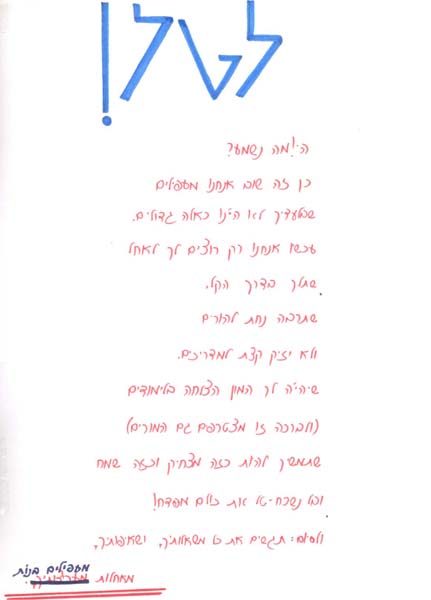 לטל!
הי! מה נשמע?
כן זה שוב אנחנו מעפילים
שבלעדיך לא היינו כאלה גדולים.
עכשו אנחנו רק רוצים לך לאחל
שתלך בדרך הקל,
שתרבה נחת להורים
ולא יזיק קצת למדריכים.
שיהיה לך המון הצלחה בלימודים
(ולברכה זו מצטרפים גם המורים)
שתמשיך להיות כזה מצחיק וכזה שמח
ובל נשכח-טל את כולם מפדח!
ולסיום: תגשים את כל משאלותיך, ושאיפותיך,
מעפילים בנות
מאחלות מעריצותיך.